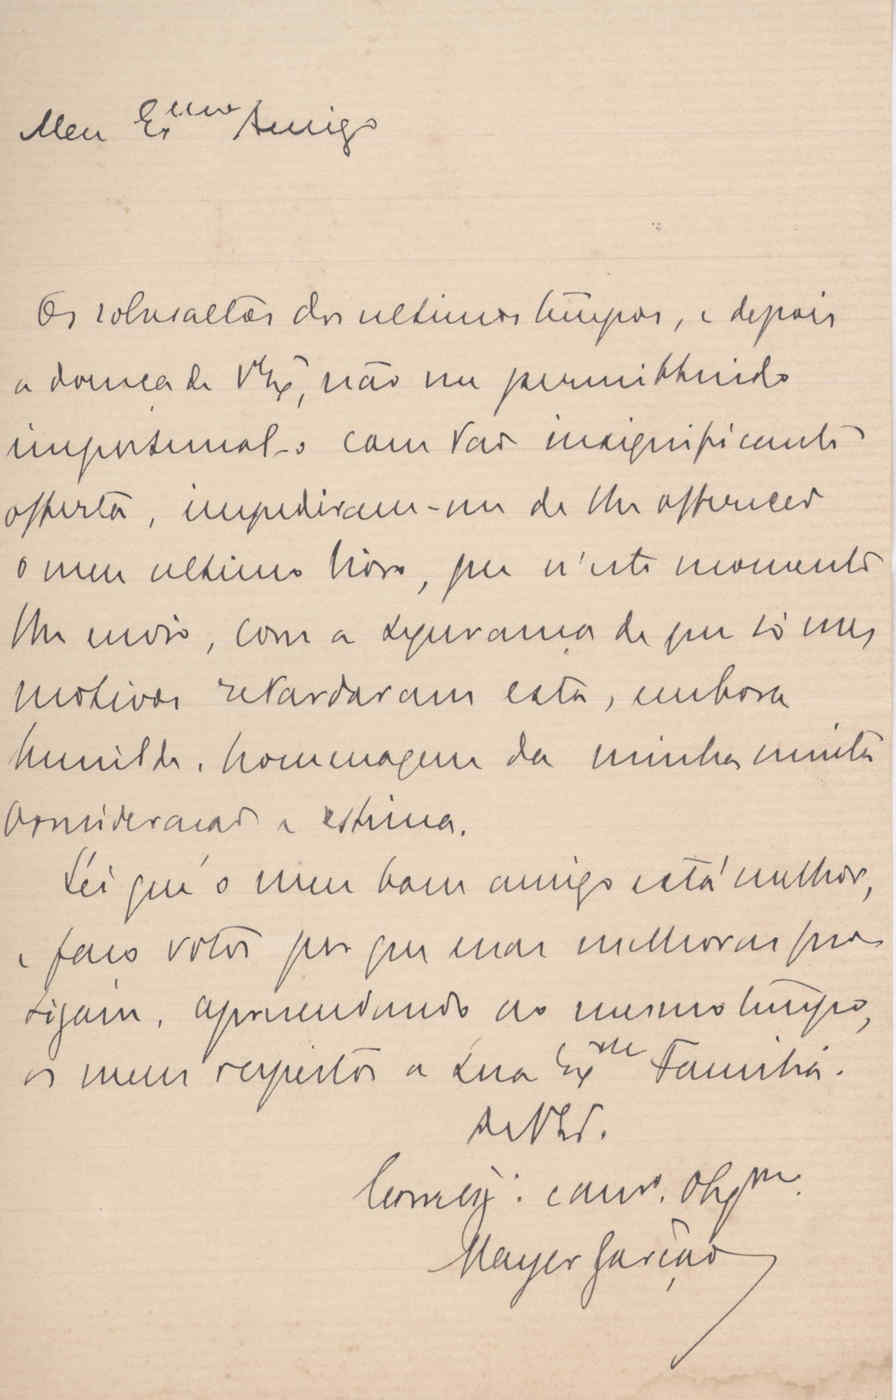 Meu Ex.mo Amigo
Os sobresaltos dos ultimos tempos, e depois
a doença de V. Ex.ª, não me permittindo
importunal-o com tão insignificante
offerta, impediram-me de lhe offerecer
o meu ultimo livro, que n'este momento
lhe envio, com a segurança de que só esses
motivos retardaram esta, embora
humilde, homenagem da minha muita
consideração e estima.
Sei que o meu bom amigo está melhor,
e faço votos por que essas melhoras pro-
sigam, apresentando ao mesmo tempo,
os meus respeitos a Sua Ex.ma Familia.
De V. Ex.ª
Mayer Garção